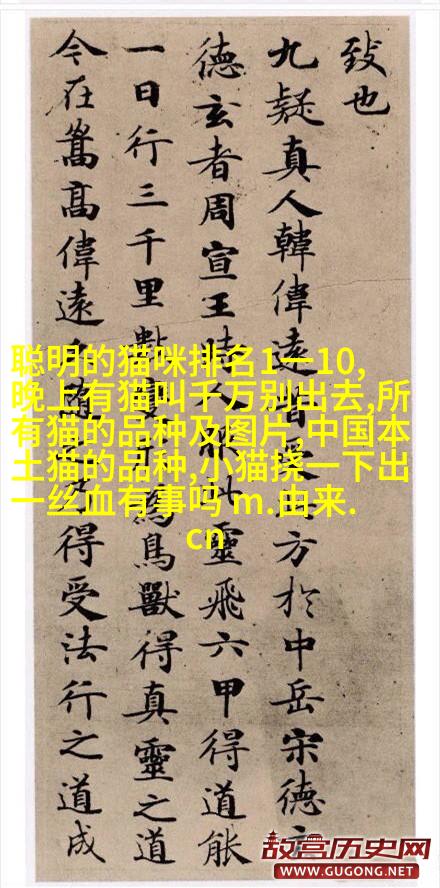 致也
九疑真人韓偉遠昔受方於中岳宋德玄
德玄者周宣王時人服此靈飛六甲得道能
一日行三千里數變為鳥獸得真靈之道
今在嵩高偉遠隨得受法行之道成
聪明的猫咪排名1一10,
晚上有猫叫千万别出去,所
有猫的品种及图片,中国本
土猫的品种,小猫挠一下出
一丝血有事吗 m.由来.
cn
故宫历史网
WWW.GUGONG.NET